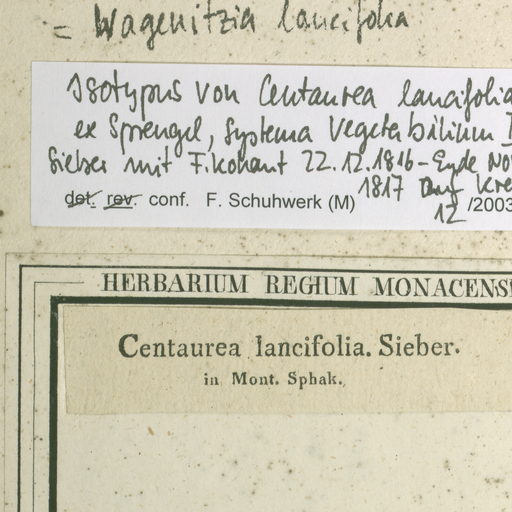 = Wagenitzia lancifolia
Isotypus von Centaurea lancifolia
ex Sprengel, Systema Vegetabilium
Sieber mit F. Kohaut 22.12.1816 - Ende Nov
1817 auf Kre
det. rev. conf. F. Schuhwerk (M) 12/2003
HERBARIUM REGIUM MONACENS
Centaurea lancifolia. Sieber.
in Mont. Sphak.